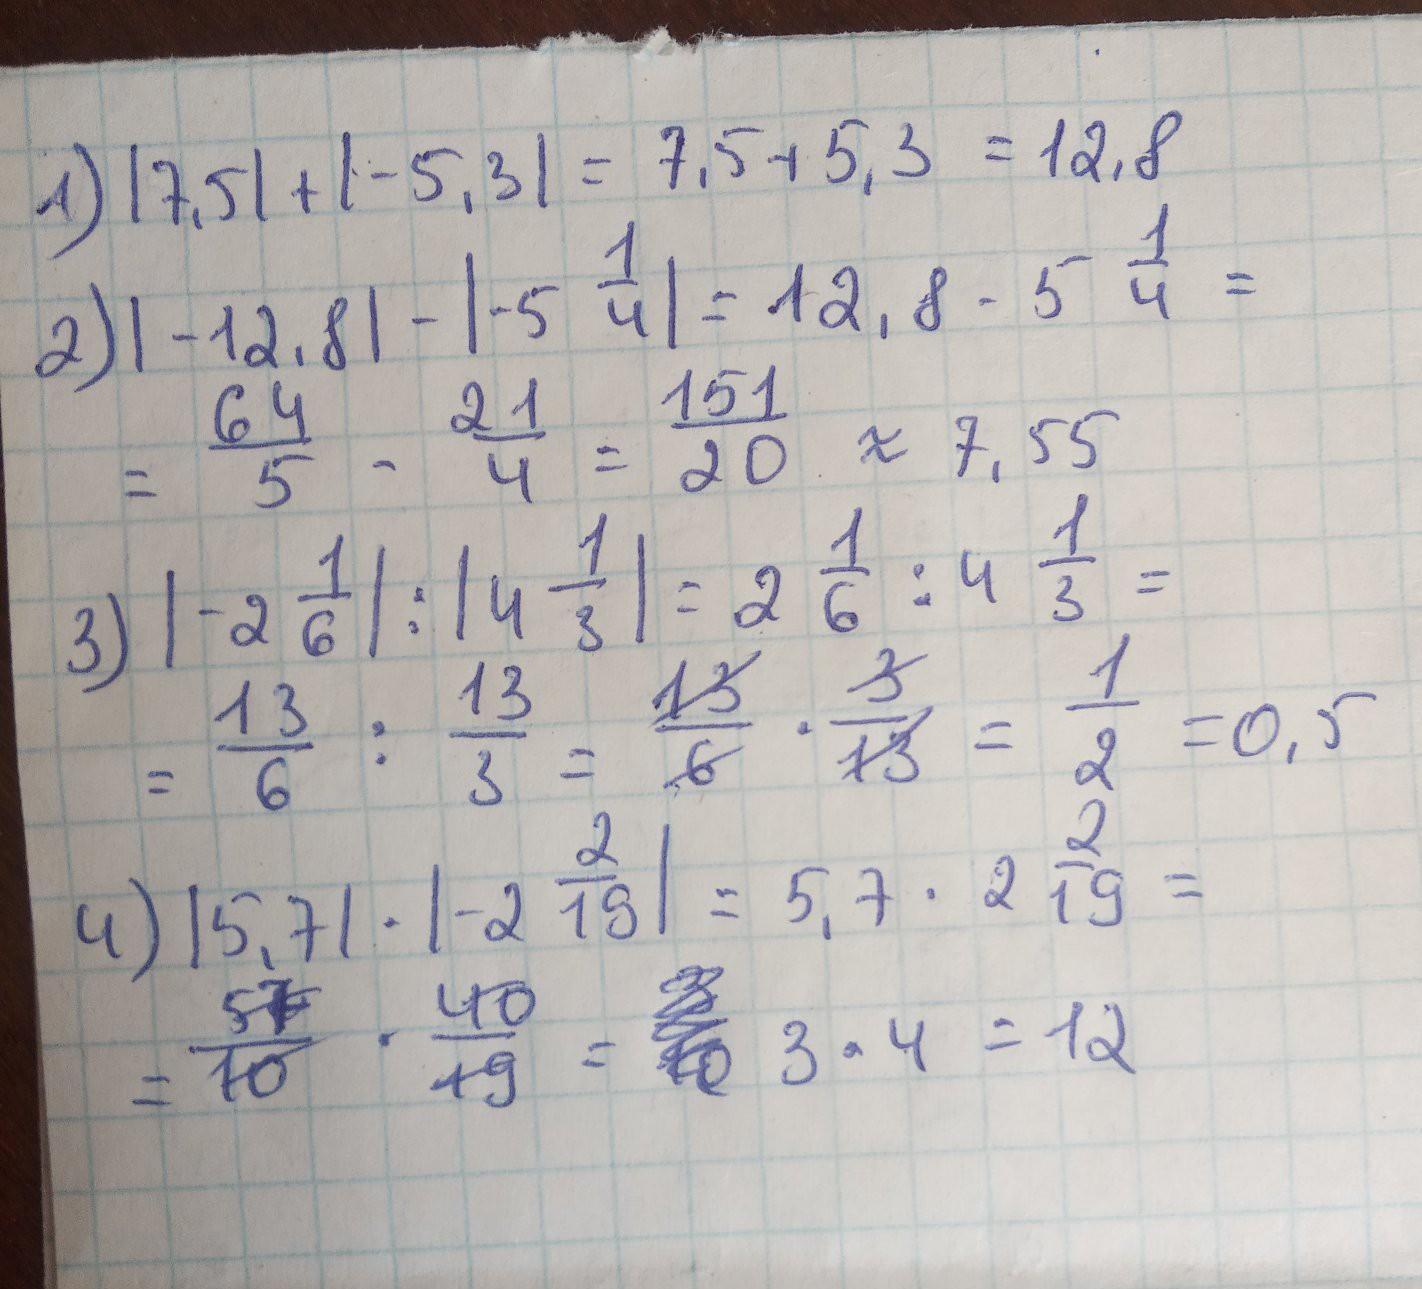 1) |7,5| + |-5,3| = 7,5 + 5,3 = 12,8
2) |-12,8| - |-5 1/4| = 12,8 - 5 1/4 =
= 64/5 - 21/4 = 151/20 ≈ 7,55
3) |-2 1/6| : |4 1/3| = 2 1/6 : 4 1/3 =
= 13/6 : 13/3 = 13/6 · 3/13 = 1/2 = 0,5
4) |5,7| · |-2 2/19| = 5,7 · 2 2/19 =
= 57/10 · 40/19 = 3 · 4 = 12